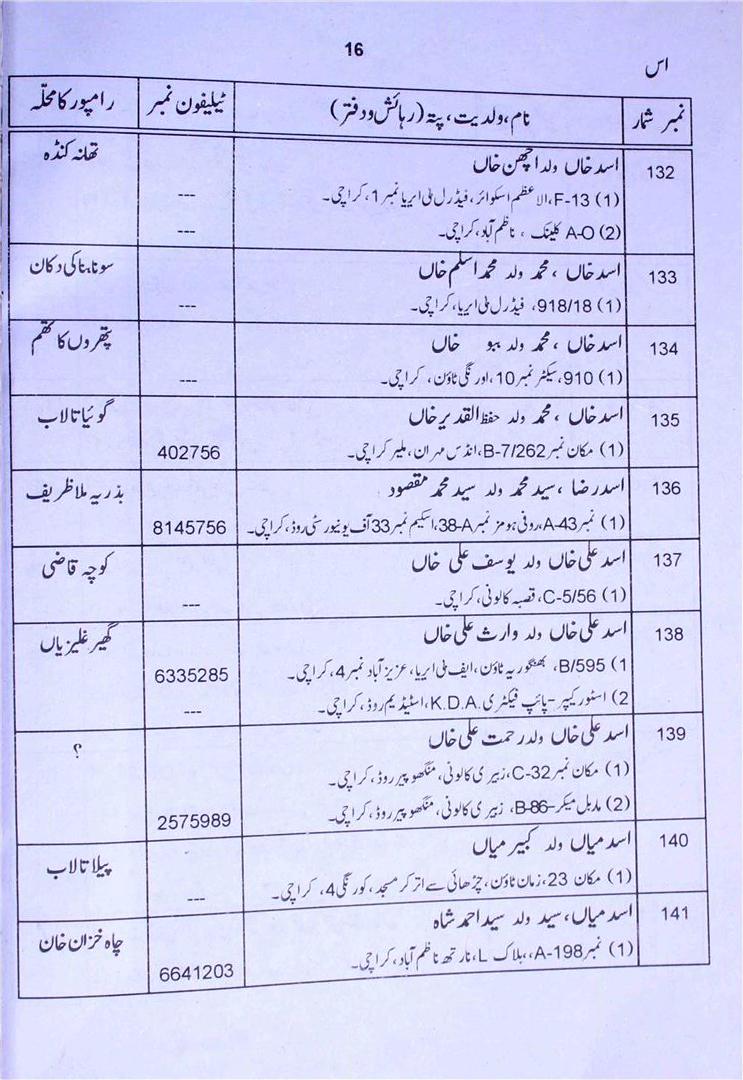 16
اس
نمبر شمار | نام، ولدیت، پتہ (رہائش و دفتر) | ٹیلیفون نمبر | رامپور کا محلّہ
132 | اسد خاں ولد اچھن خاں | تھانہ کنڈہ
(1) F-13، الاعظم اسکوائر، فیڈرل بی ایریا نمبر 1، کراچی۔ | ---
(2) A-O کلینک ، ناظم آباد، کراچی۔ | ---
133 | اسد خاں ، محمد ولد محمد اسلم خاں | سونا بنا کی دکان
(1) 918/18، فیڈرل بی ایریا، کراچی۔ | ---
134 | اسد خاں ، محمد ولد ببو خاں | پتھروں کا تھم
(1) 910، سیکٹر نمبر 10، اورنگی ٹاؤن، کراچی۔ | ---
135 | اسد خاں ، محمد ولد حفظ القدیر خاں | گوئیا تالاب
(1) مکان نمبر B-7/262، انڈس مہران، ملیر کراچی۔ | 402756
136 | اسد رضا ، سید محمد ولد سید محمد مقصود | بذریہ ملا ظریف
(1) نمبر A-43، روفی ہومز نمبر 38-A، اسکیم نمبر 33 آف یونیورسٹی روڈ، کراچی۔ | 8145756
137 | اسد علی خاں ولد یوسف علی خاں | کوچہ قاضی
(1) C-5/56، قصبہ کالونی، کراچی۔ | ---
138 | اسد علی خاں ولد وارث علی خاں | گھیر غلیزیاں
1) B/595، بھنگوریہ ٹاؤن، ایف بی ایریا، عزیز آباد نمبر 4، کراچی۔ | 6335285
2) اسٹور کیپر - پائپ فیکٹری K.D.A.، اسٹیڈیم روڈ، کراچی۔ | ---
139 | اسد علی خاں ولد رحمت علی خاں | ؟
(1) مکان نمبر C-32، زبیری کالونی، منگھو پیر روڈ، کراچی۔
(2) ماربل میکر - B-86، زبیری کالونی، منگھو پیر روڈ، کراچی۔ | 2575989
140 | اسد میاں ولد کبیر میاں | پیلا تالاب
(1) مکان 23، زمان ٹاؤن، چڑھائی سے اتر کر مسجد، کورنگی 4، کراچی۔ | ---
141 | اسد میاں، سید ولد سید احمد شاہ | چاہ خزان خان
(1) نمبر A-198، بلاک L، نارتھ ناظم آباد، کراچی۔ | 6641203